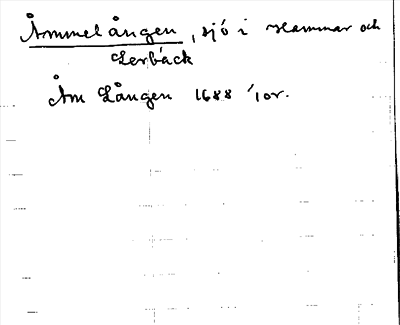 Åmmelången, sjö i Hammar och
Lerbäck
Åm Lången 1688 'Jor.